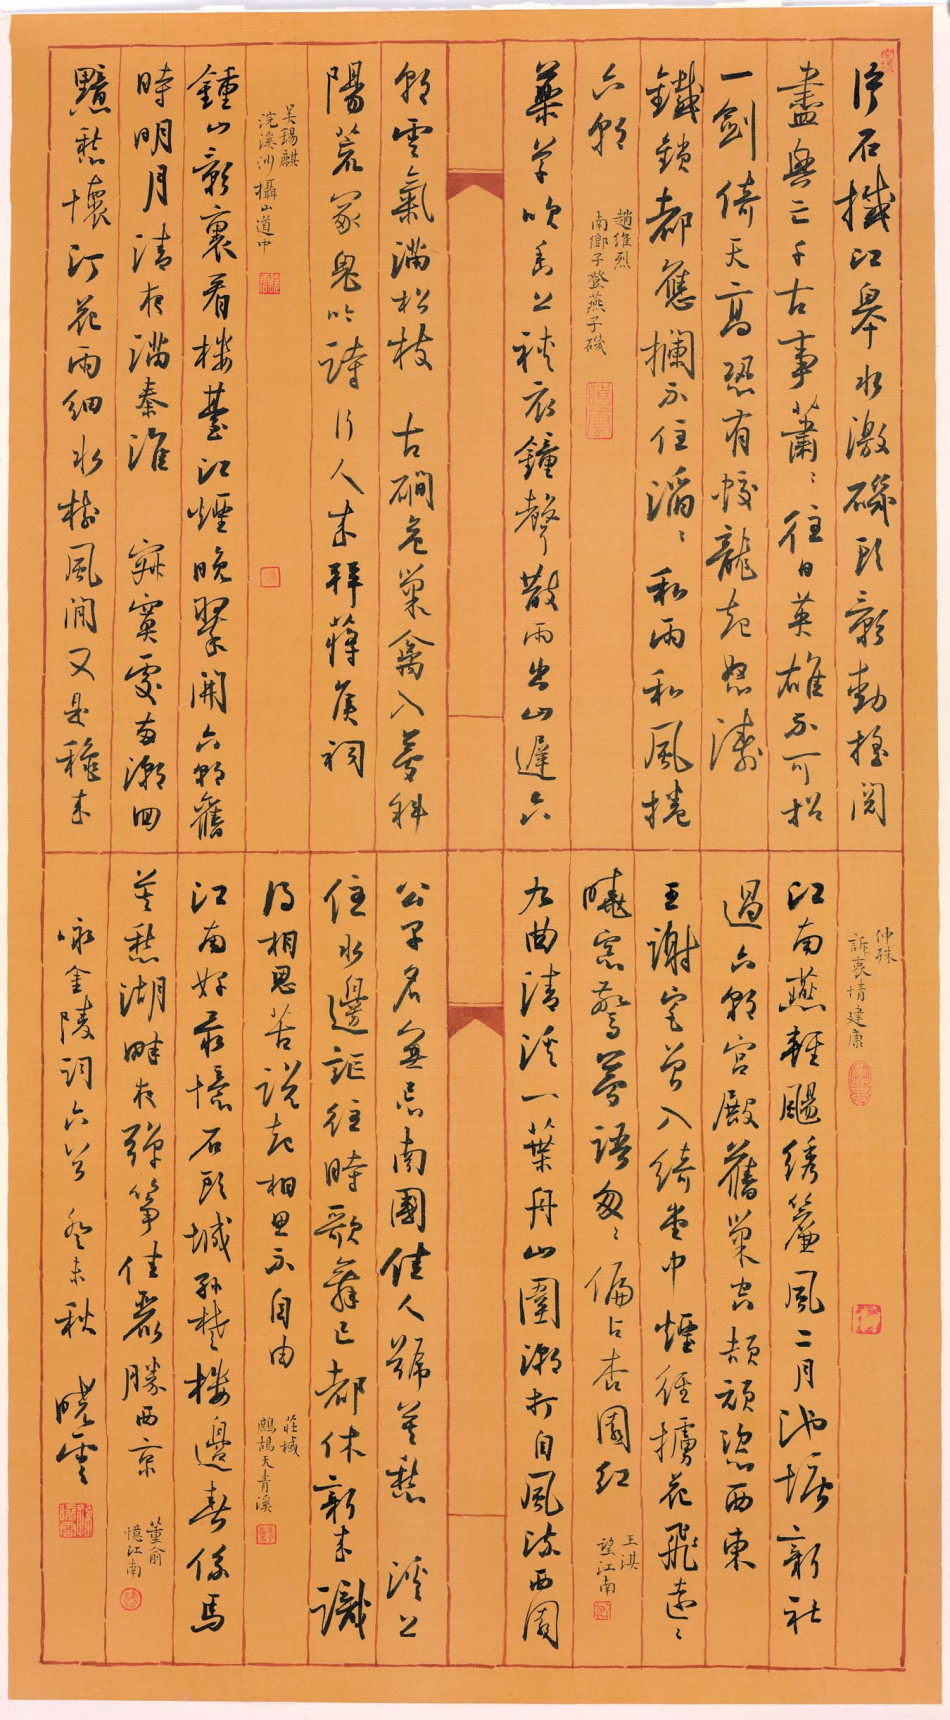 片石撼江皋水激磯頭影動搖閱
盡興亡千古事蕭〻往日英雄不可招
一劍倚天高恐有蛟龍起怒濤
鐵鎖都應攔不住滔〻和雨和風捲
六朝
趙維烈
南鄉子登燕子磯
藥草吹香上裌衣鐘聲散雨出山遲六
朝雲氣滿松枝 古磵危巢禽入夢斜
陽荒冢鬼吟詩行人來拜蔣侯祠
吳錫麒
浣溪沙攝山道中
鍾山影裏看樓臺江煙晚翠開六朝舊
時明月清夜滿秦淮 寂寞處兩潮回
黯愁懷汀花雨細水樹風閒又是穐來
仲殊
訴衷情建康
江南燕輕颺繡簾風二月池塘新社
過六朝宮殿舊巢空頡頏恣西東
王謝宅曾入綺堂中煙徑掠花飛遠〻
曉窗驚夢語匆〻偏占杏園紅
王淇
望江南
九曲清溪一葉舟山圍潮打自風流西園
公子名無忌南國佳人號莫愁 溪上
住水邊謳往時歌舞已都休新來識
得相思苦說起相思不自由
莊棫
鷓鴣天青溪
江南好最憶石頭城孫楚樓邊春係馬
莫愁湖畔夜彈箏佳麗勝西京
董俞
憶江南
詠金陵詞六首 癸未秋 曉雲